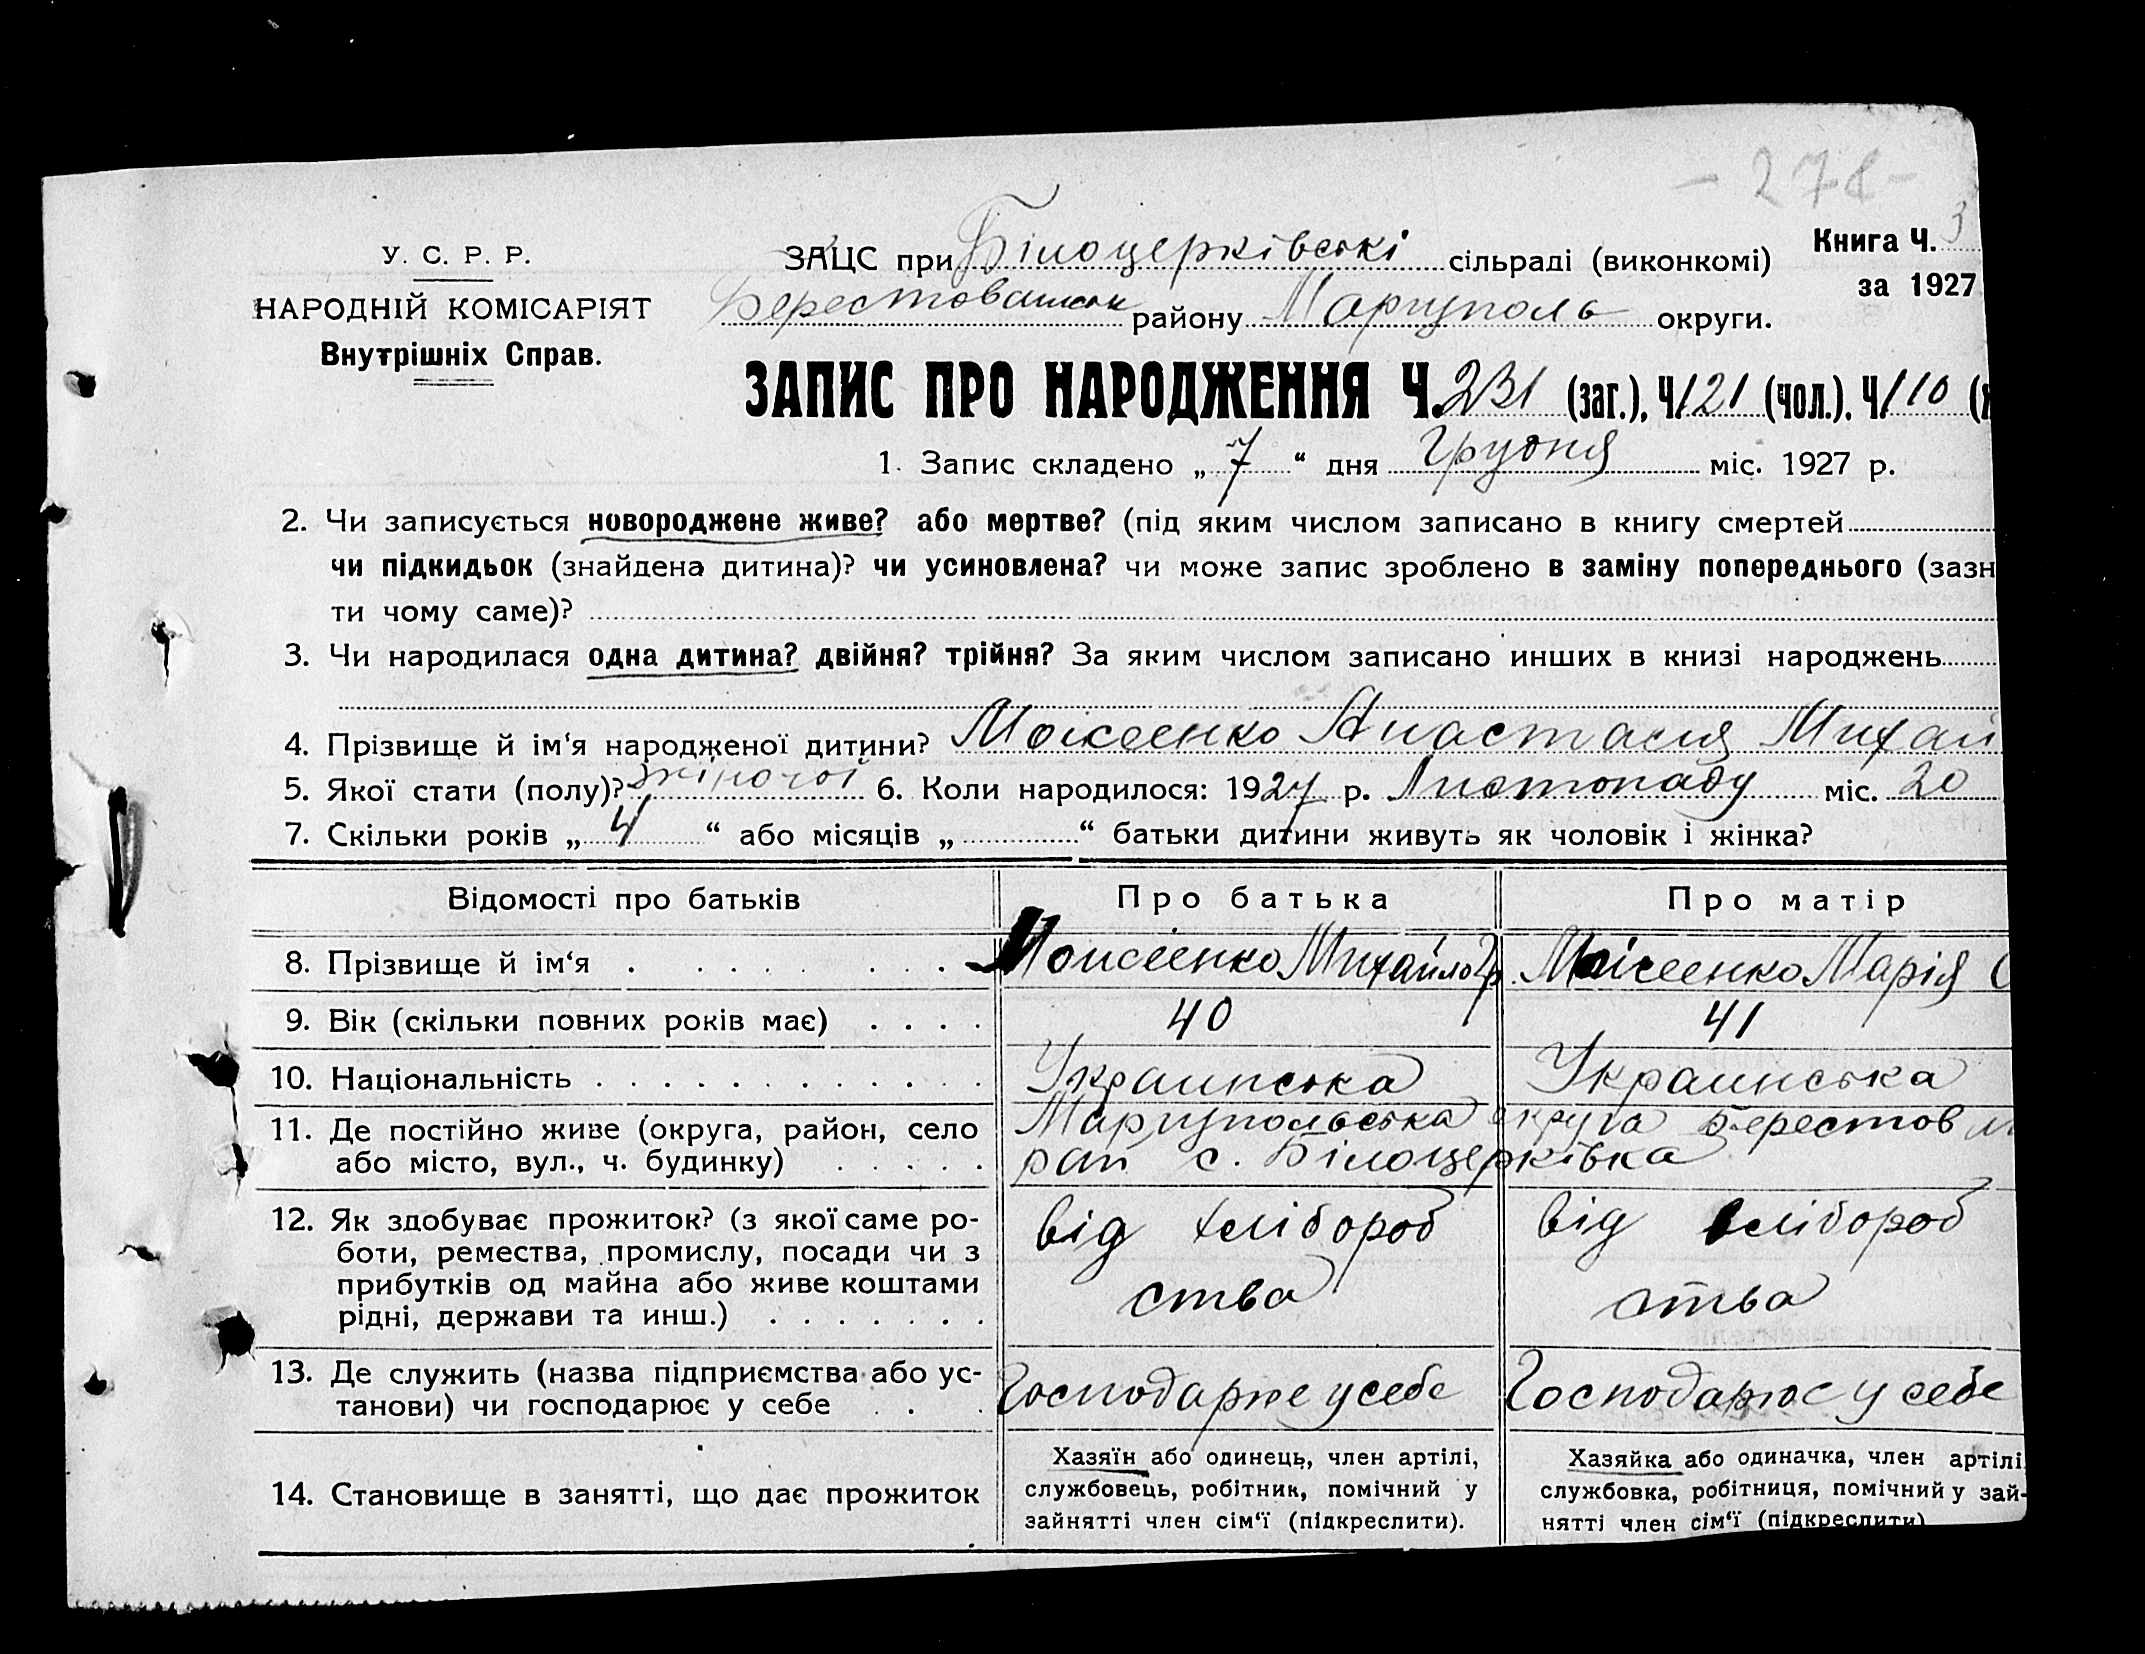 - 271 -
У. С. Р. Р.
НАРОДНІЙ КОМІСАРІЯТ
Внутрішніх Справ.
ЗАЦС при Білоцерківскі сільраді (виконкомі)
Книга Ч. 3
за 1927
району Маріуполь округи.
ЗАПИС ПРО НАРОДЖЕННЯ Ч. 231 (заг.), Ч 121 (чол.), Ч 110
1. Запис складено „ 7 “ дня Грудня міс. 1927 р.
2. Чи записується новороджене живе? або мертве? (під яким числом записано в книгу смертей
чи підкидьок (знайдена дитина)? чи усиновлена? чи може запис зроблено в заміну попереднього (зазн
ти чому саме)?
3. Чи народилася одна дитина? двійня? трійня? За яким числом записано инших в книзі народжень
4. Прізвище й ім‘я народженої дитини? Моісеенко Анастасия Михай
5. Якої стати (полу)? жіночої 6. Коли народилося: 1927 р. Листопаду міс. 20
7. Скільки років „ 4 “ або місяців „ “ батьки дитини живуть як чоловік і жінка?
Відомості про батьків Про батька Про матір
8. Прізвище й ім‘я Моисеенко Михайло Гр. Моісеенко Марія С
9. Вік (скільки повних років має) 40 41
10. Національність Украинська Украинська
11. Де постійно живе (округа, район, село Маріупольська округа Берестов
або місто, вул., ч. будинку) рай с. Білоцерківка
12. Як здобуває прожиток? (з якої саме ро- від хлібороб від хлібороб
боти, ремества, промислу, посади чи з
прибутків од майна або живе коштами ства ства
рідні, держави та инш.)
13. Де служить (назва підприємства або ус- Господарює у себе Господарює у себе
танови) чи господарює у себе
14. Становище в занятті, що дає прожиток
Хазяїн або одинець, член артілі,
службовець, робітник, помічний у
зайнятті член сім‘ї (підкреслити).
Хазяйка або одиначка, член артілі
службовка, робітниця, помічний у зай-
нятті член сім‘ї (підкреслити)